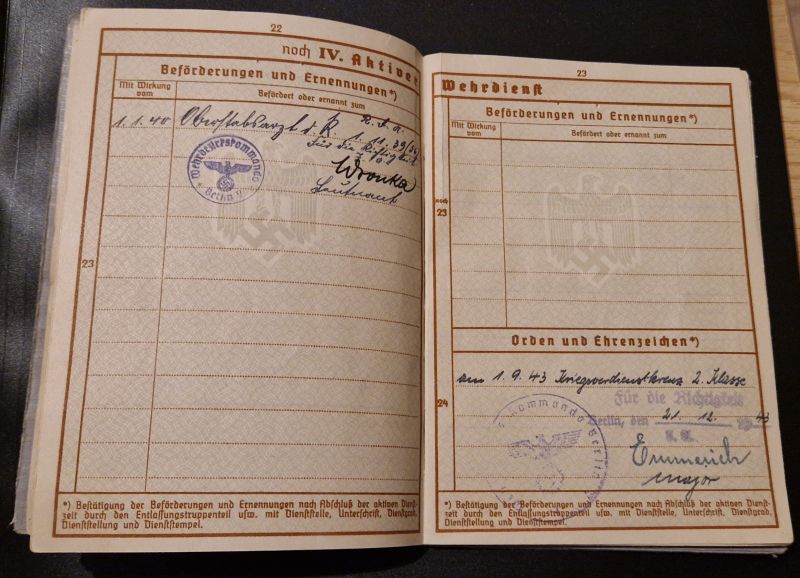 22
noch IV. Aktiver
Beförderungen und Ernennungen*)
Mit Wirkung vom
Befördert oder ernannt zum
1.1.40 Oberstabsarzt d. R.
1.11.39
Für die Richtigkeit
Wronka
Leutnant
Wehrbezirkskommando
* Berlin
23
*) Bestätigung der Beförderungen und Ernennungen nach Abschluß der aktiven Dienst-
zeit durch den Entlassungstruppenteil usw. mit Dienststelle, Unterschrift, Dienstgrad,
Dienststellung und Dienststempel.
23
Wehrdienst
Beförderungen und Ernennungen*)
Mit Wirkung vom
Befördert oder ernannt zum
noch
23
Orden und Ehrenzeichen*)
am 1.9.43 Kriegsverdienstkreuz 2. Klasse
Für die Richtigkeit
24
Berlin, den 21. 12. 1943
Emmerich
Major
kommando Berlin
*) Bestätigung der Beförderungen und Ernennungen nach Abschluß der aktiven Dienst-
zeit durch den Entlassungstruppenteil usw. mit Dienststelle, Unterschrift, Dienstgrad,
Dienststellung und Dienststempel.